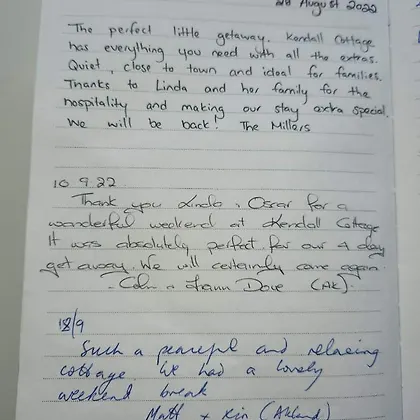 28 August 2022
The perfect little getaway. Kendall Cottage
has everything you need with all the extras.
Quiet, close to town and ideal for families.
Thanks to Linda and her family for the
hospitality and making our stay extra special.
We will be back! The Millers
10.9.22
Thank you Linda & Oscar for a
wonderful weekend at Kendall Cottage
It was absolutely perfect for our 4 day
get away. We will certainly come again.
- Colin & Dove (AK).
18/9
Such a peaceful and relaxing
cottage. We had a lovely
weekend break
Matt + Kim (Akland)